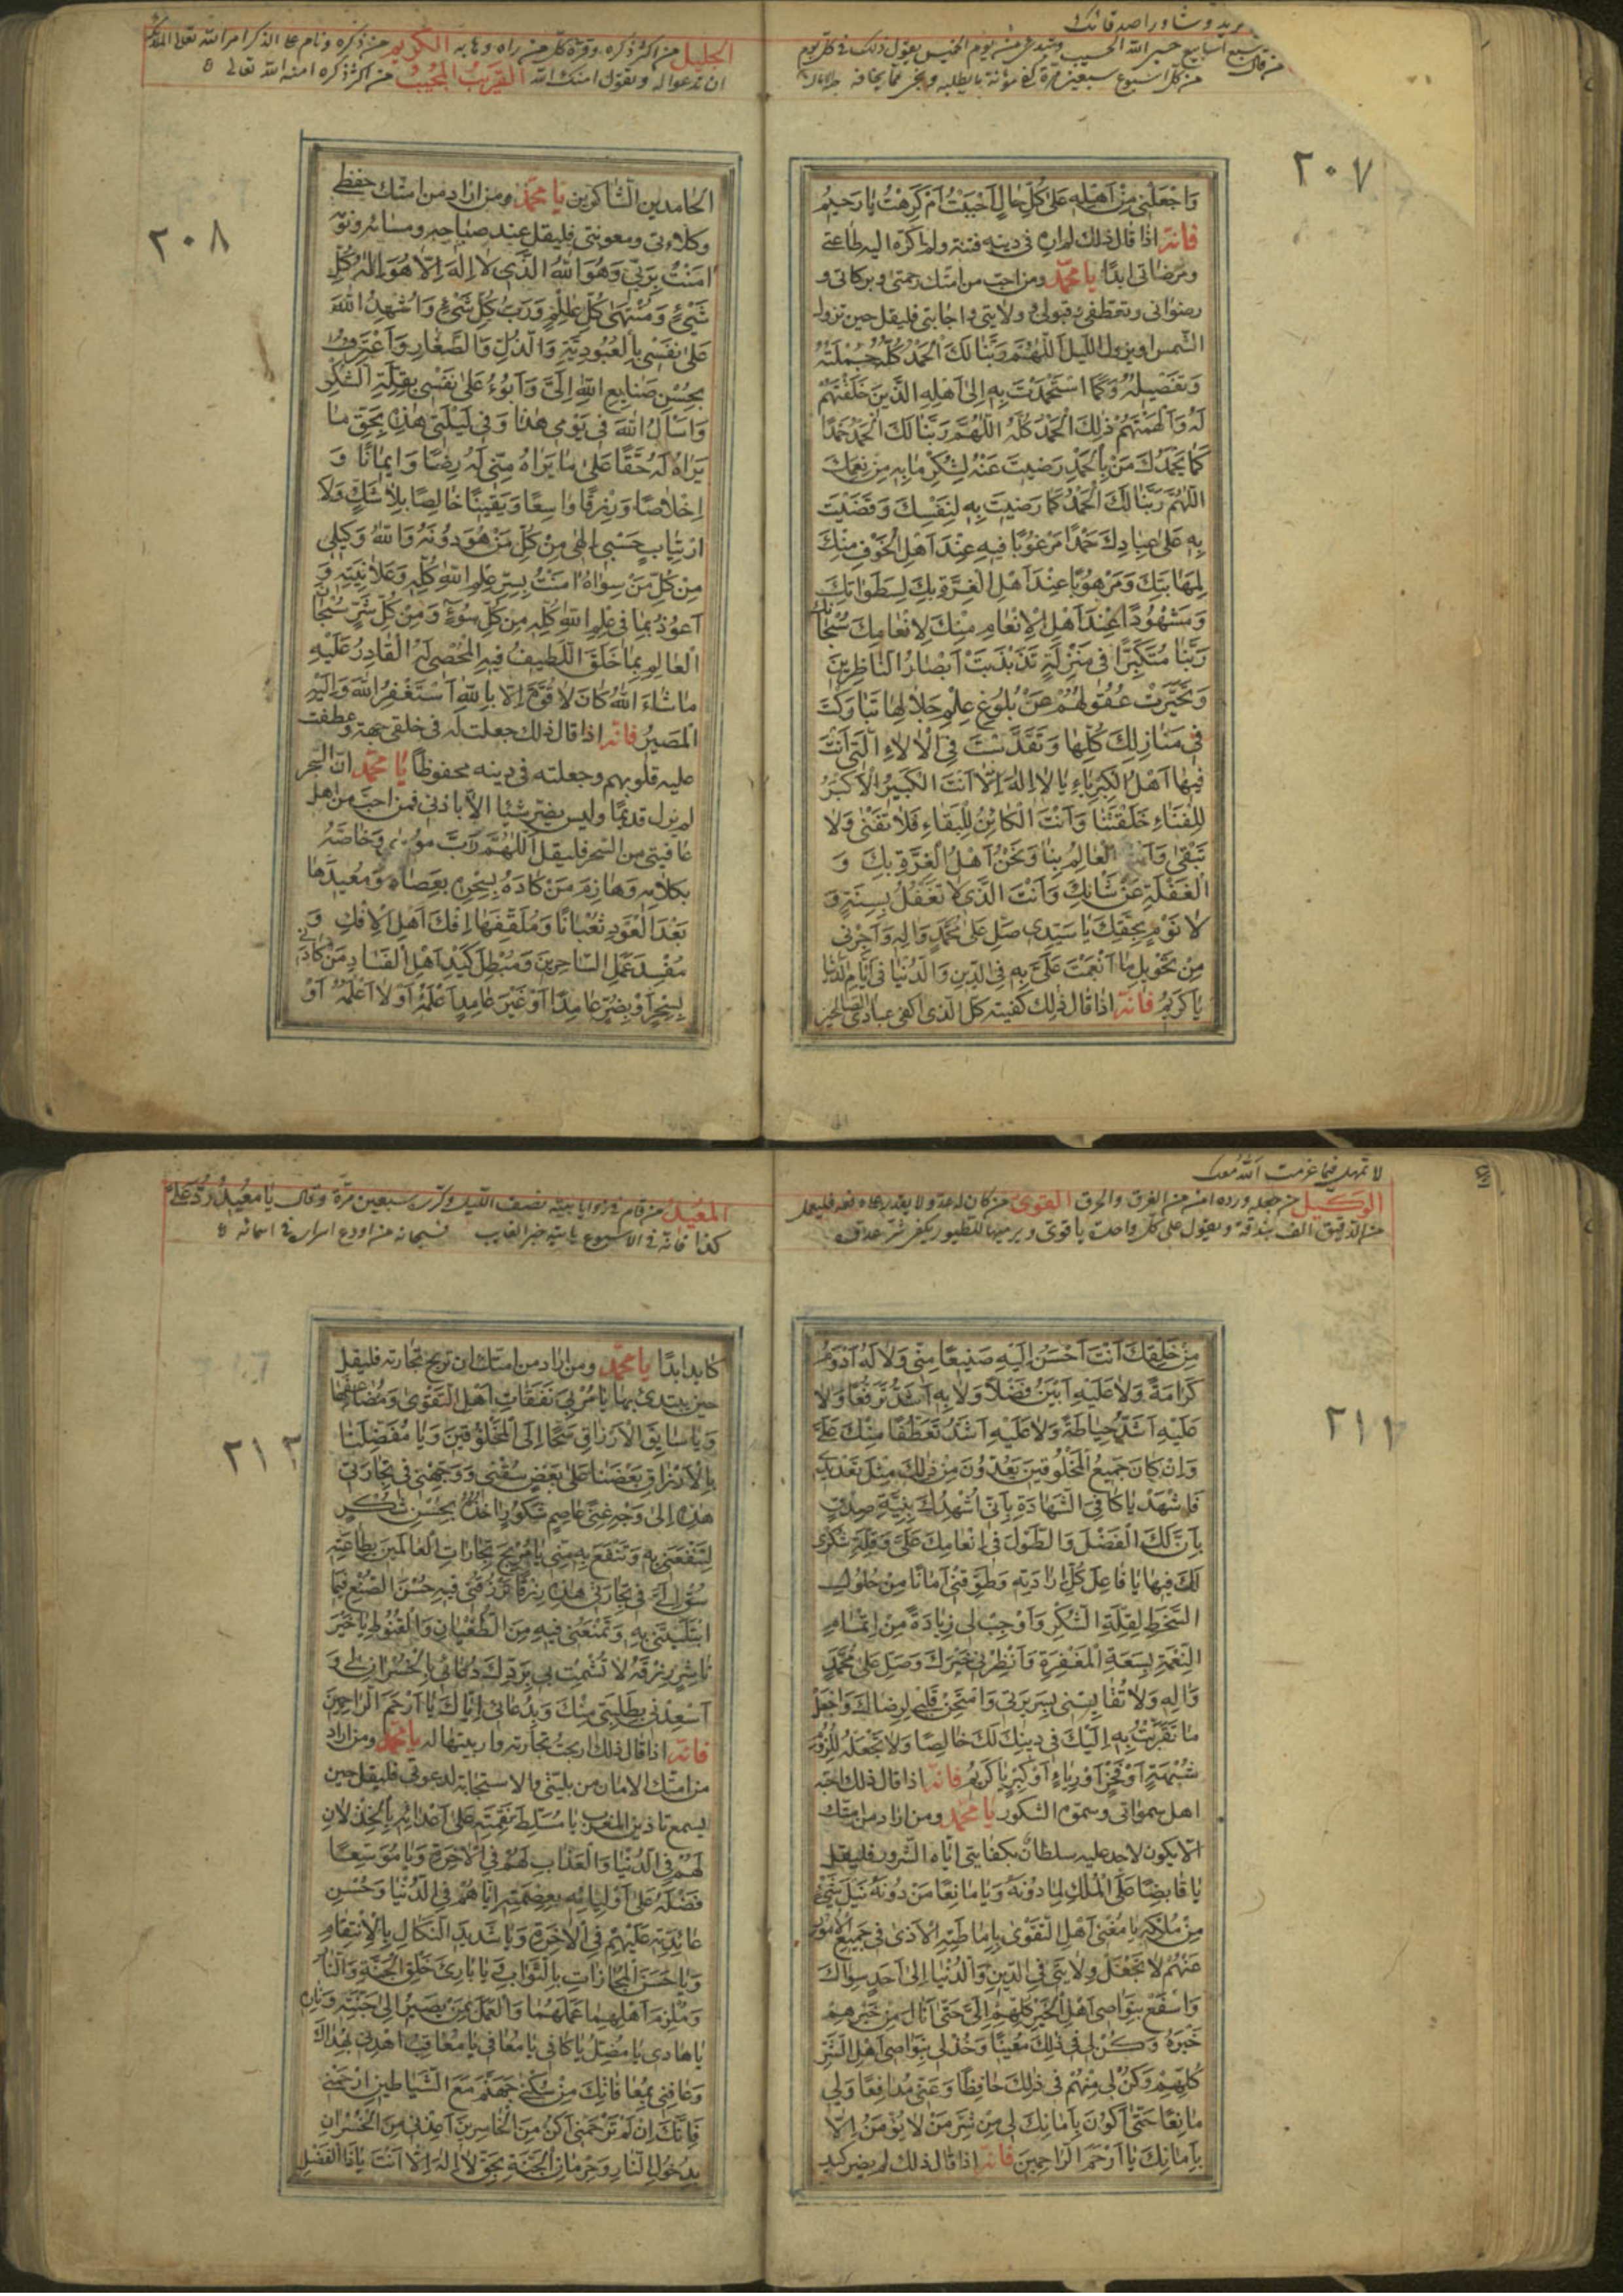 يريد وشاور اصدقائك
من قال سبع اسابيع حسبي الله الحسيب ويبتدئ من يوم الخميس يقول ذلك في كل يوم
من كل اسبوع سبعين مرة كفى مؤنة ما يطلبه ويخشى مما يخافه
٢٠٧
وَاجْعَلْنِي مِنْ اَهْلِهِ عَلىٰ كُلِّ حٰالٍ اَحْبَبْتُ اَمْ كَرِهْتُ يٰا رَحِيمُ
فانّه اذا قال ذلك لم اره في دينه فتنة ولم اكرّه اليه طاعتي
ومرضاتي ابدًا يا محمّد ومن احبّ من امتك رحمتي وبركاتي و
رضواني وتعطفي وقبولي وولايتي واجابتي فليقل حين تزول
الشمس او يزول الليل اَللّٰهُمَّ رَبَّنٰا لَكَ الْحَمْدُ كُلُّهُ جُمْلَتُهُ
وَتَفْصِيلُهُ وَكَمَا اسْتَحْمَدْتَ بِهِ اِلىٰ اَهْلِهِ الَّذِينَ خَلَقْتَهُمْ
لَهُ وَاَلْهَمْتَهُمْ ذٰلِكَ الْحَمْدَ كُلَّهُ اَللّٰهُمَّ رَبَّنٰا لَكَ الْحَمْدُ حَمْدًا
كَمٰا يَحْمَدُكَ مَنْ بِالْحَمْدِ رَضِيتَ عَنْهُ لِشُكْرِ مٰا بِهِ مِنْ نِعَمِكَ
اَللّٰهُمَّ رَبَّنٰا لَكَ الْحَمْدُ كَمٰا رَضِيتَ بِهِ لِنَفْسِكَ وَقَضَيْتَ
بِهِ عَلىٰ عِبٰادِكَ حَمْدًا مَرْغُوبًا فِيهِ عِنْدَ اَهْلِ الْخَوْفِ مِنْكَ
لِمَهٰابَتِكَ وَمَرْهُوبًا عِنْدَ اَهْلِ الْعِزَّةِ بِكَ لِسَطَوٰاتِكَ
وَمَشْهُودًا عِنْدَ اَهْلِ الْاِنْعٰامِ مِنْكَ لِاِنْعٰامِكَ سُبْحٰانَكَ
رَبَّنٰا مُتَكَبِّرًا فِي مَنْزِلَةٍ تَذَبْذَبَتْ اَبْصٰارُ النّٰاظِرِينَ
وَتَحَيَّرَتْ عُقُولُهُمْ عَنْ بُلُوغِ عِلْمِ جَلاٰلِهٰا تَبٰارَكْتَ
فِي مَنٰازِلِكَ كُلِّهٰا وَتَقَدَّسْتَ فِي الْاٰلاٰءِ الَّتِي اَنْتَ
فِيهٰا اَهْلُ الْكِبْرِيٰاءِ يٰا لاٰ اِلٰهَ اِلّٰا اَنْتَ الْكَبِيرُ الْاَكْبَرُ
لِلْفَنٰاءِ خَلَقْتَنٰا وَاَنْتَ الْكٰائِنُ لِلْبَقٰاءِ فَلاٰ تَفْنىٰ وَلاٰ
نَبْقىٰ وَاَنْتَ الْعٰالِمُ بِنٰا وَنَحْنُ اَهْلُ الْغِرَّةِ بِكَ وَ
الْغَفْلَةِ عَنْ شَأْنِكَ وَاَنْتَ الَّذِي لاٰ تَغْفُلُ بِسِنَةٍ وَ
لاٰ نَوْمٍ بِحَقِّكَ يٰا سَيِّدِي صَلِّ عَلىٰ مُحَمَّدٍ وَاٰلِهِ وَاَجِرْنِي
مِنْ تَحْوِيلِ مٰا اَنْعَمْتَ عَلَيَّ بِهِ فِي الدِّينِ وَالدُّنْيٰا فِي اَيّٰامِ الدُّنْيٰا
يٰا كَرِيمُ فانّه اذا قال ذلك كفيته كل الذي اكفي عبادي الصالحين
الجليل من اكثر ذكره وقره كل من راه وهابه الكريم من ذكره ونام على الذكر امر الله تعالى الملائكة
ان تدعوا له وتقول امنك الله القريب المجيب من اكثر ذكره امنه الله تعالى
٢٠٨
الحامدين الشاكرين يا محمّد ومن اراد من امتك حفظي
وكلاءتي ومعونتي فليقل عند صباحه ومسائه ونومه
اٰمَنْتُ بِرَبِّي وَهُوَ اللّٰهُ الَّذِي لاٰ اِلٰهَ اِلّٰا هُوَ اِلٰهُ كُلِّ
شَيْءٍ وَمُنْتَهىٰ كُلِّ عِلْمٍ وَرَبُّ كُلِّ شَيْءٍ وَاُشْهِدُ اللّٰهَ
عَلىٰ نَفْسِي بِالْعُبُودِيَّةِ وَالذُّلِّ وَالصَّغٰارِ وَاَعْتَرِفُ
بِحُسْنِ صَنٰايِعِ اللّٰهِ اِلَيَّ وَاَبُوءُ عَلىٰ نَفْسِي بِقِلَّةِ الشُّكْرِ
وَاَسْأَلُ اللّٰهَ فِي يَوْمِي هٰذٰا وَفِي لَيْلَتِي هٰذِهِ بِحَقِّ مٰا
يَرٰاهُ لَهُ حَقًّا عَلىٰ مٰا يَرٰاهُ مِنِّي لَهُ رِضًا وَاِيمٰانًا وَ
اِخْلاٰصًا وَرِزْقًا وٰاسِعًا وَيَقِينًا خٰالِصًا بِلاٰ شَكٍّ وَلاَ
ارْتِيٰابٍ حَسْبِي اِلٰهِي مِنْ كُلِّ مَنْ هُوَ دُونَهُ وَاللّٰهُ وَكِيلِي
مِنْ كُلِّ مَنْ سِوٰاهُ اٰمَنْتُ بِسِرِّ عِلْمِ اللّٰهِ كُلِّهِ وَعَلاٰنِيَتِهِ وَ
اَعُوذُ بِمٰا فِي عِلْمِ اللّٰهِ كُلِّهِ مِنْ كُلِّ سُوءٍ وَمِنْ كُلِّ شَرٍّ سُبْحٰانَ
الْعٰالِمِ بِمٰا خَلَقَ اللَّطِيفُ فِيهِ الْمُحْصِي لَهُ الْقٰادِرُ عَلَيْهِ
مٰا شٰاءَ اللّٰهُ كٰانَ لاٰ قُوَّةَ اِلّٰا بِاللّٰهِ اَسْتَغْفِرُ اللّٰهَ وَاِلَيْهِ
الْمَصِيرُ فانّه اذا قال ذلك جعلت له في خلقي جهة وعطفت
عليه قلوبهم وجعلته في دينه محفوظًا يا محمّد انّ السحر
لم يزل قديمًا وليس يضر شيئا الّا باذني فمن احبّ من اهل
عافيتي من السحر فليقل اَللّٰهُمَّ رَبَّ مُوسىٰ وَخٰاصَّهُ
بِكَلاٰمِهِ وَهٰازِمَ مَنْ كٰادَهُ بِسِحْرِهِ بِعَصٰاهُ وَمُعِيدَهٰا
بَعْدَ الْعَوْدِ ثُعْبٰانًا وَمُلَقِّفَهٰا اِفْكَ اَهْلِ الْاِفْكِ وَ
مُفْسِدَ عَمَلِ السّٰاحِرِينَ وَمُبْطِلَ كَيْدِ اَهْلِ الْفَسٰادِ مَنْ كٰادَنِي
بِسِحْرٍ اَوْ بِضُرٍّ عٰامِدًا اَوْ غَيْرَ عٰامِدٍ اَعْلَمُهُ اَوْ لاٰ اَعْلَمُهُ اَوْ
لا تمهل فيما عزمت الله معك
الوكيل من جعله ورده امن من الغرق والحرق القوي من كان له عدو ولا يقدر على دفعه فليعمل
من الدقيق الف بندقة ويقول على كل واحدة يا قوي ويرميها للطيور يكفى شر عدوه
٢١١
مِنْ خَلْقِكَ اَنْتَ اَحْسَنُ اِلَيْهِ صَنِيعًا مِنِّي وَلاٰ لَهُ اَدْوَمُ
كَرٰامَةً وَلاٰ عَلَيْهِ اَبْيَنُ فَضْلاً وَلاٰ بِهِ اَشَدُّ تَرَفُّقًا وَلاٰ
عَلَيْهِ اَشَدُّ حِيٰاطَةً وَلاٰ عَلَيْهِ اَشَدُّ تَعَطُّفًا مِنْكَ عَلَيَّ
وَاِنْ كٰانَ جَمِيعُ الْمَخْلُوقِينَ يُعَدِّدُونَ مِنْ ذٰلِكَ مِثْلَ تَعْدِيدِي
فَاشْهَدْ يٰا كٰافِيَ الشَّهٰادَةِ بِاَنِّي اُشْهِدُكَ بِنِيَّةِ صِدْقٍ
بِاَنَّ لَكَ الْفَضْلَ وَالطَّوْلَ فِي اِنْعٰامِكَ عَلَيَّ وَقِلَّةِ شُكْرِي
لَكَ فِيهٰا يٰا فٰاعِلَ كُلِّ اِرٰادَتِهِ وَطَوِّقْنِي اَمٰانًا مِنْ حُلُولِ
السَّخَطِ لِقِلَّةِ الشُّكْرِ وَاَوْجِبْ لِي زِيٰادَةً مِنْ اِتْمٰامِ
النِّعْمَةِ بِسَعَةِ الْمَغْفِرَةِ وَاَنْظِرْنِي خَيْرَكَ وَصَلِّ عَلىٰ مُحَمَّدٍ
وَاٰلِهِ وَلاٰ تُقٰايِسْنِي بِسَرِيرَتِي وَامْتَحِنْ قَلْبِي لِرِضٰاكَ وَاجْعَلْ
مٰا تَقَرَّبْتُ بِهِ اِلَيْكَ فِي دِينِكَ لَكَ خٰالِصًا وَلاٰ تَجْعَلْهُ لِلُزُومِ
شُبْهَةٍ اَوْ فَخْرٍ اَوْ رِيٰاءٍ اَوْ كِبْرٍ يٰا كَرِيمُ فانّه اذا قال ذلك احبّه
اهل سمواتي وسموه الشكور يا محمّد ومن اراد من امتك
الّا يكون لاحد عليه سلطان بكفايتي ايّاه الشرور فليقل
يٰا قٰابِضًا عَلَى الْمُلْكِ لِمٰا دُونَهُ وَيٰا مٰانِعًا مَنْ دُونَهُ نَيْلَ شَيْءٍ
مِنْ مُلْكِهِ يٰا مُغْنِيَ اَهْلِ التَّقْوىٰ بِاِمٰاطَتِهِ الْاَذىٰ فِي جَمِيعِ الْاُمُورِ
عَنْهُمْ لاٰ تَجْعَلْ وِلاٰيَتِي فِي الدِّينِ وَالدُّنْيٰا اِلىٰ اَحَدٍ سِوٰاكَ
وَاسْفَعْ بِنَوٰاصِي اَهْلِ الْخَيْرِ كُلِّهِمْ اِلَيَّ حَتّىٰ اَنٰالَ مِنْ خَيْرِهِمْ
خَيْرَهُ وَكُنْ لِي فِي ذٰلِكَ مُعِينًا وَخُذْ لِي بِنَوٰاصِي اَهْلِ الشَّرِّ
كُلِّهِمْ وَكُنْ لِي مِنْهُمْ فِي ذٰلِكَ حٰافِظًا وَعَنِّي مُدٰافِعًا وَلِي
مٰانِعًا حَتّىٰ اَكُونَ بِاَمٰانِكَ لِي مِنْ شَرِّ مَنْ لاٰ يُؤْمَنُ اِلّٰا
بِاَمٰانِكَ يٰا اَرْحَمَ الرّٰاحِمِينَ فانّه اذا قال ذلك لم يضره كيد
المعيد من قام في زوايا بيته نصف الليل وكرره سبعين مرة وقال يا معيد ردّ علي
كذا فانه في الاسبوع ياتيه خبر الغايب فسبحانه من اودع اسراره في اسمائه
٢١٢
كايد ابدًا يا محمّد ومن اراد من امتك ان تربح تجارته فليقل
حين يبتدئ بها يٰا مُرْبِيَ نَفَقٰاتِ اَهْلِ التَّقْوىٰ وَمُضٰاعِفَهٰا
وَيٰا سٰائِقَ الْاَرْزٰاقِ سَحًّا اِلَى الْمَخْلُوقِينَ وَيٰا مُفَضِّلَنٰا
بِالْاَرْزٰاقِ بَعْضَنٰا عَلىٰ بَعْضٍ سُقْنِي وَوَجِّهْنِي فِي تِجٰارَتِي
هٰذِهِ اِلىٰ وَجْهِ غِنًى عٰاصِمٍ شَكُورٍ اٰخُذُهُ بِحُسْنِ شُكْرٍ
لِتَنْفَعَنِي بِهِ وَتَنْفَعَ بِهِ مِنِّي يٰا مُرْبِحَ تِجٰارٰاتِ الْعٰالَمِينَ بِطٰاعَتِهِ
سُقْ لِي فِي تِجٰارَتِي هٰذِهِ رِزْقًا تَرْزُقُنِي فِيهِ حُسْنَ الصُّنْعِ فِيمَا
ابْتَلَيْتَنِي بِهِ وَتَمْنَعُنِي فِيهِ مِنَ الطُّغْيٰانِ وَالْقُنُوطِ يٰا خَيْرَ
نٰاشِرٍ رِزْقَهُ لاٰ تُشْمِتْ بِي بِرَدِّكَ دُعٰائِي بِالْخُسْرٰانِ لِي وَ
اَسْعِدْنِي بِطَلِبَتِي مِنْكَ وَبِدُعٰائِي اِيّٰاكَ يٰا اَرْحَمَ الرّٰاحِمِينَ
فانّه اذا قال ذلك اربحت تجارته واربيتها له يا محمّد ومن اراد
من امتك الامان من بليتي والاستجابة لدعوته فليقل حين
يسمع تاذين المغرب يٰا مُسَلِّطَ نِقَمِهِ عَلىٰ اَعْدٰائِهِ بِالْخِذْلاٰنِ
لَهُمْ فِي الدُّنْيٰا وَالْعَذٰابِ لَهُمْ فِي الْاٰخِرَةِ وَيٰا مُوَسِّعًا
فَضْلَهُ عَلىٰ اَوْلِيٰائِهِ بِعِصْمَتِهِ اِيّٰاهُمْ فِي الدُّنْيٰا وَحُسْنِ
عٰائِدَتِهِ عَلَيْهِمْ فِي الْاٰخِرَةِ وَيٰا شَدِيدَ النَّكٰالِ بِالْاِنْتِقٰامِ
وَيٰا حَسَنَ الْمُجٰازٰاتِ بِالثَّوٰابِ وَيٰا بٰارِئَ خَلْقِ الْجَنَّةِ وَالنّٰارِ
وَمُلْزِمَ اَهْلِهِمٰا عَمَلَهُمٰا وَالْعٰالِمَ بِمَنْ يَصِيرُ اِلىٰ جَنَّتِهِ وَنٰارِهِ
يٰا هٰادِي يٰا مُضِلُّ يٰا كٰافِي يٰا مُعٰافِي يٰا مُعٰاقِبُ اهْدِنِي بِهُدٰاكَ
وَعٰافِنِي بِمُعٰافٰاتِكَ مِنْ سُكْنىٰ جَهَنَّمَ مَعَ الشَّيٰاطِينِ ارْحَمْنِي
فَاِنَّكَ اِنْ لَمْ تَرْحَمْنِي اَكُنْ مِنَ الْخٰاسِرِينَ اَعِذْنِي مِنَ الْخُسْرٰانِ
بِدُخُولِ النّٰارِ وَحِرْمٰانِ الْجَنَّةِ بِحَقِّ لاٰ اِلٰهَ اِلّٰا اَنْتَ يٰا ذَا الْفَضْلِ